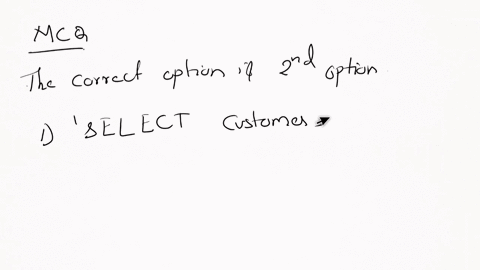 MCQ
The correct option if 2nd option
1) 'SELECT Customes